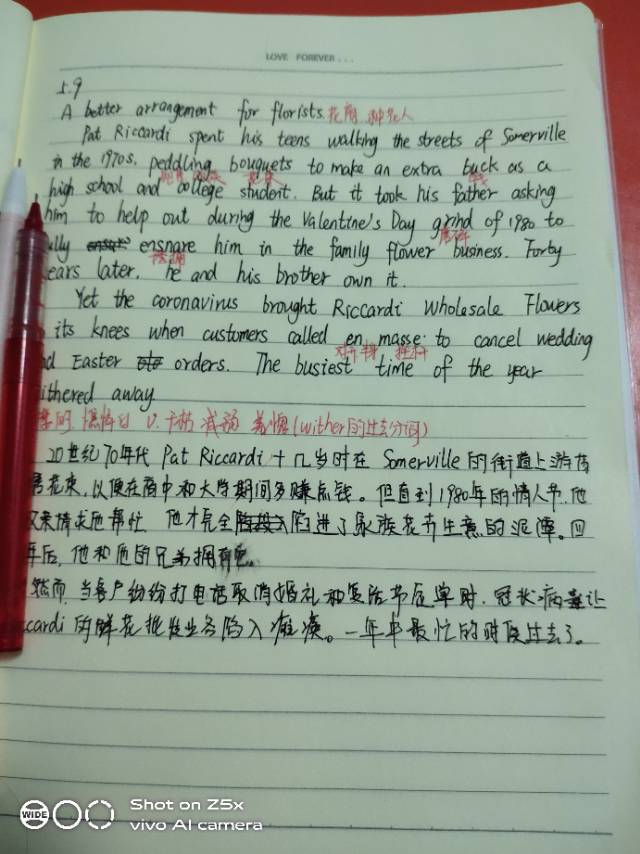 LOVE FOREVER...
5.9
A better arrangement for florists 花商 种花人
Pat Riccardi spent his teens walking the streets of Somerville
in the 1970s, peddling bouquets to make an extra buck as a
花束 钱
high school and college student. But it took his father asking
him to help out during the Valentine's Day grind of 1980 to
ully ensnare him in the family flower business. Forty
ears later, he and his brother own it.
Yet the coronavirus brought Riccardi Wholesale Flowers
its knees when customers called en masse to cancel wedding
d Easter orders. The busiest time of the year
ithered away
v. 干枯 减弱 羞愧 (wither的过去分词)
20世纪70年代 Pat Riccardi 十几岁时在 Somerville 的街道上游荡
售花束,以便在高中和大学期间多赚点钱。但直到1980年的情人节,他
父亲请求他帮忙 他才完全陷进了家族花卉生意的泥潭。四
年后,他和他的兄弟拥有它。
然而,当客户纷纷打电话取消婚礼和复活节庆单时,冠状病毒让
ccardi 的鲜花批发业务陷入瘫痪。一年中最忙的时候过去了。
WIDE
Shot on Z5x
vivo AI camera